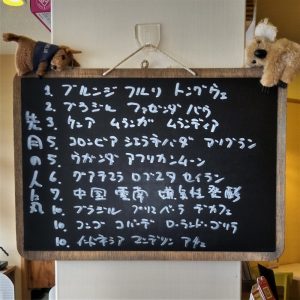 先月の人気
1. ブルンジ フルリ トングウェ
2. ブラジル ファゼンダ バウ
3. ケニア ムランガ ムランディア
5. コロンビア シエラネバダ アリグラン
5. ウガンダ アフリカンムーン
6. グアテマラ ロブスタ セイラン
7. 中国 雲南 嫌気性発酵
10. ブラジル プリマベーラ デカフェ
10. コンゴ コパーデ ローランド・ゴリラ
10. インドネシア マンデリン アチェ